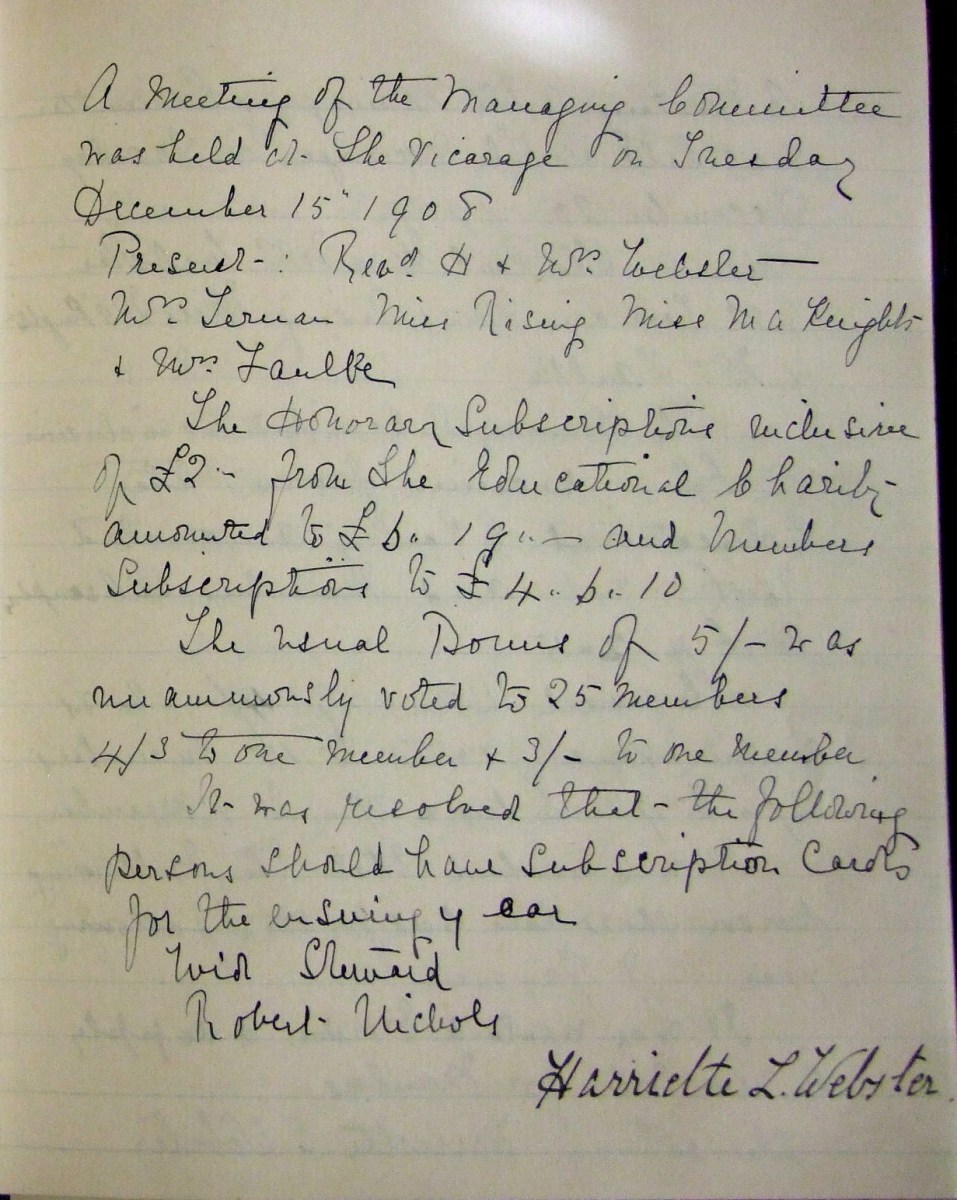 A Meeting of the Managing Committee
was held at The Vicarage on Tuesday
December 15" 1908
Present-: Revd. H & Mrs. Webster —
Mrs. Miss Rising Miss M A Knights
& Mrs Faulke
The Honorary Subscriptions inclusive
of £2"- from The Educational Charity
amounted to £6"19"— and Members
Subscriptions to £4"6"10
The usual Bonus of 5/- was
unanimously voted to 25 members
4/3 to one member & 3/- to one member
It was resolved that the following
persons should have Subscription Cards
for the ensuing year
Wid Steward
Robert Nichols
Harriette L. Webster.